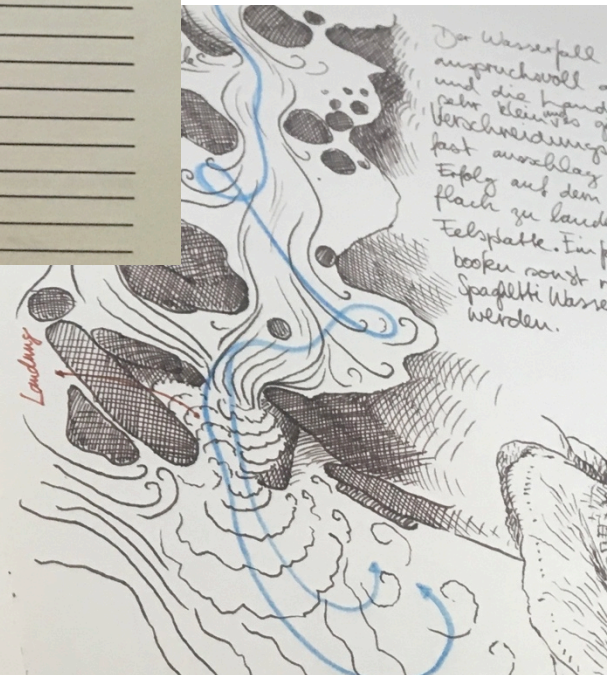 Der Wasserfall
anspruchsvoll
und die Land
sehr kleines
Verschneidung
fast ausschlag
Erfolg auf dem
flach zu land
Felsplatte. Ein
boofen sonst
Spagetti Wasse
werden.
Landung